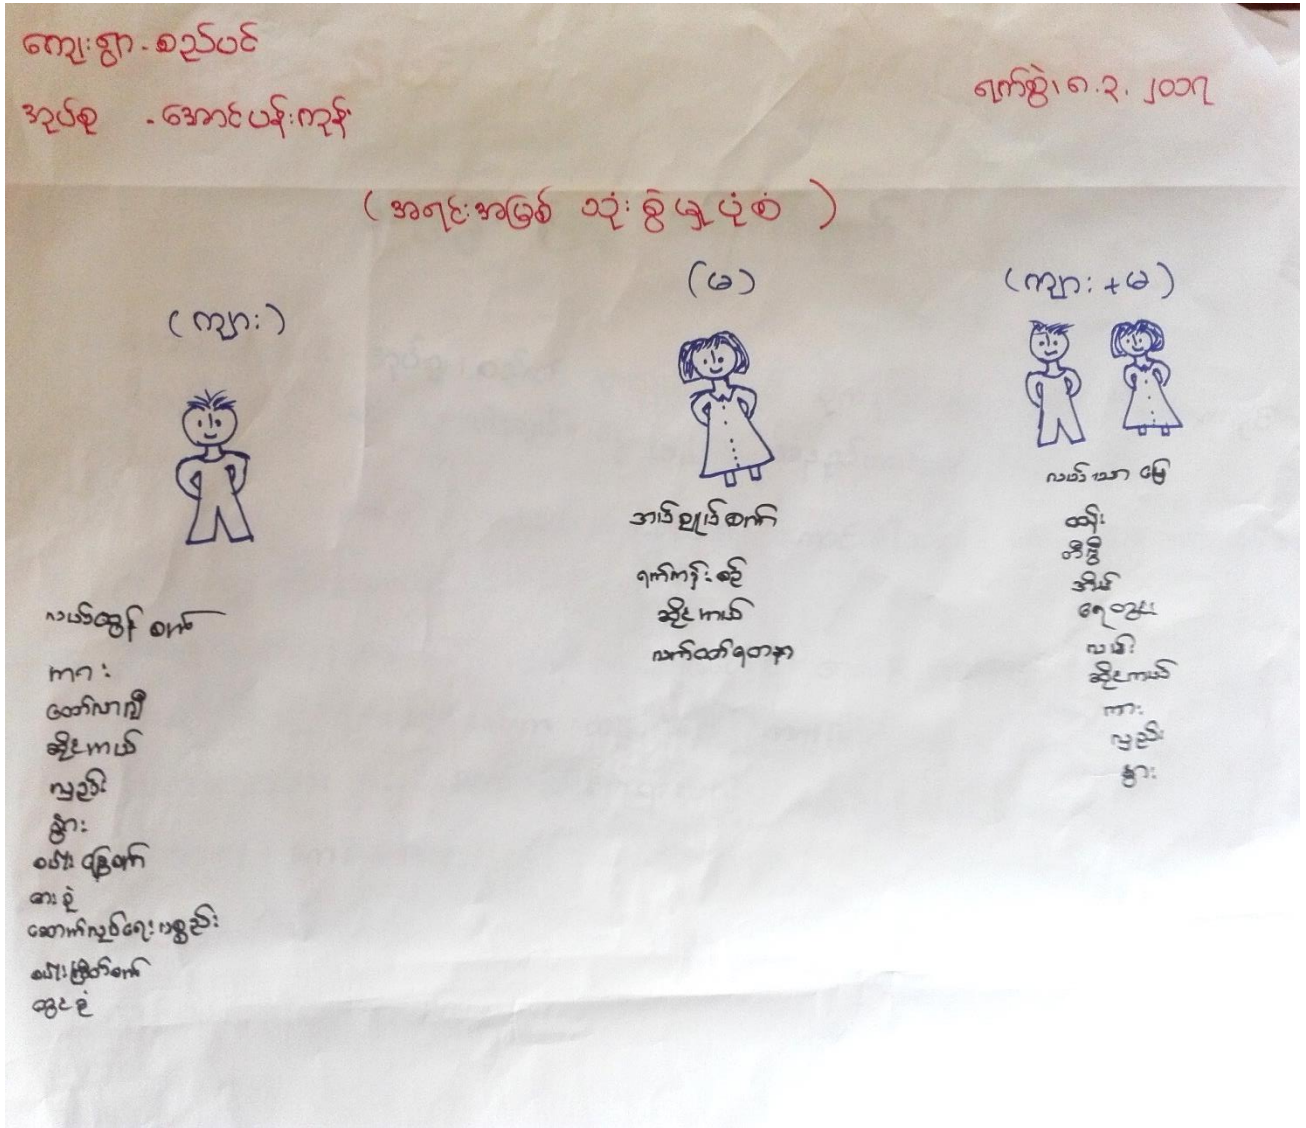 ကျေးရွာ - စည်ပင်
အုပ်စု - အောင်ပန်းကုန်း
ရက်စွဲ၊ ၈.၃.၂၀၁၇
(အရင်းအမြစ် သုံးစွဲမှုပုံစံ)
(ကျား)
လယ်ထွန်စက်
ကား
ထော်လာဂျီ
ဆိုင်ကယ်
လှည်း
နွား
စပါးခြွေစက်
ဓား
ဆောက်လုပ်ရေးပစ္စည်း
စပါးကြိတ်စက်
(မ)
အပ်ချုပ်စက်
ရက်ကန်းစင်
ဆိုင်ကယ်
လက်ဝတ်ရတနာ
(ကျား + မ)
လယ်ယာမြေ
ထန်း
တီဗွီ
အိမ်
ရေတွင်း
လမ်း
ဆိုင်ကယ်
ကား
လှည်း
နွား